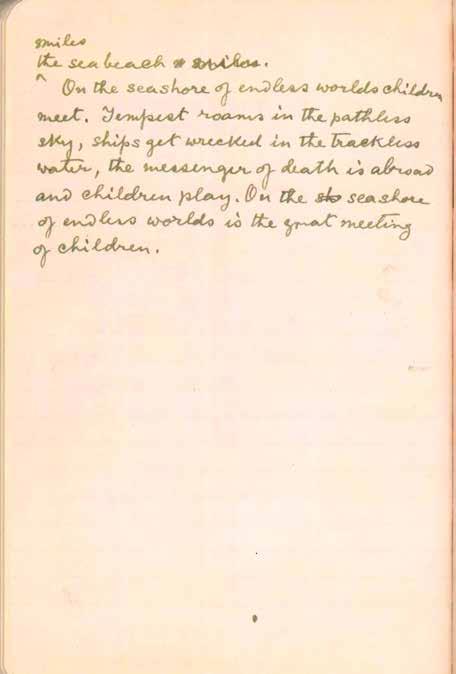 smiles
the sea beach smiles.
^ On the seashore of endless worlds children
meet. Tempest roams in the pathless
sky, ships get wrecked in the trackless
water, the messenger of death is abroad
and children play. On the seashore
of endless worlds is the great meeting
of children.